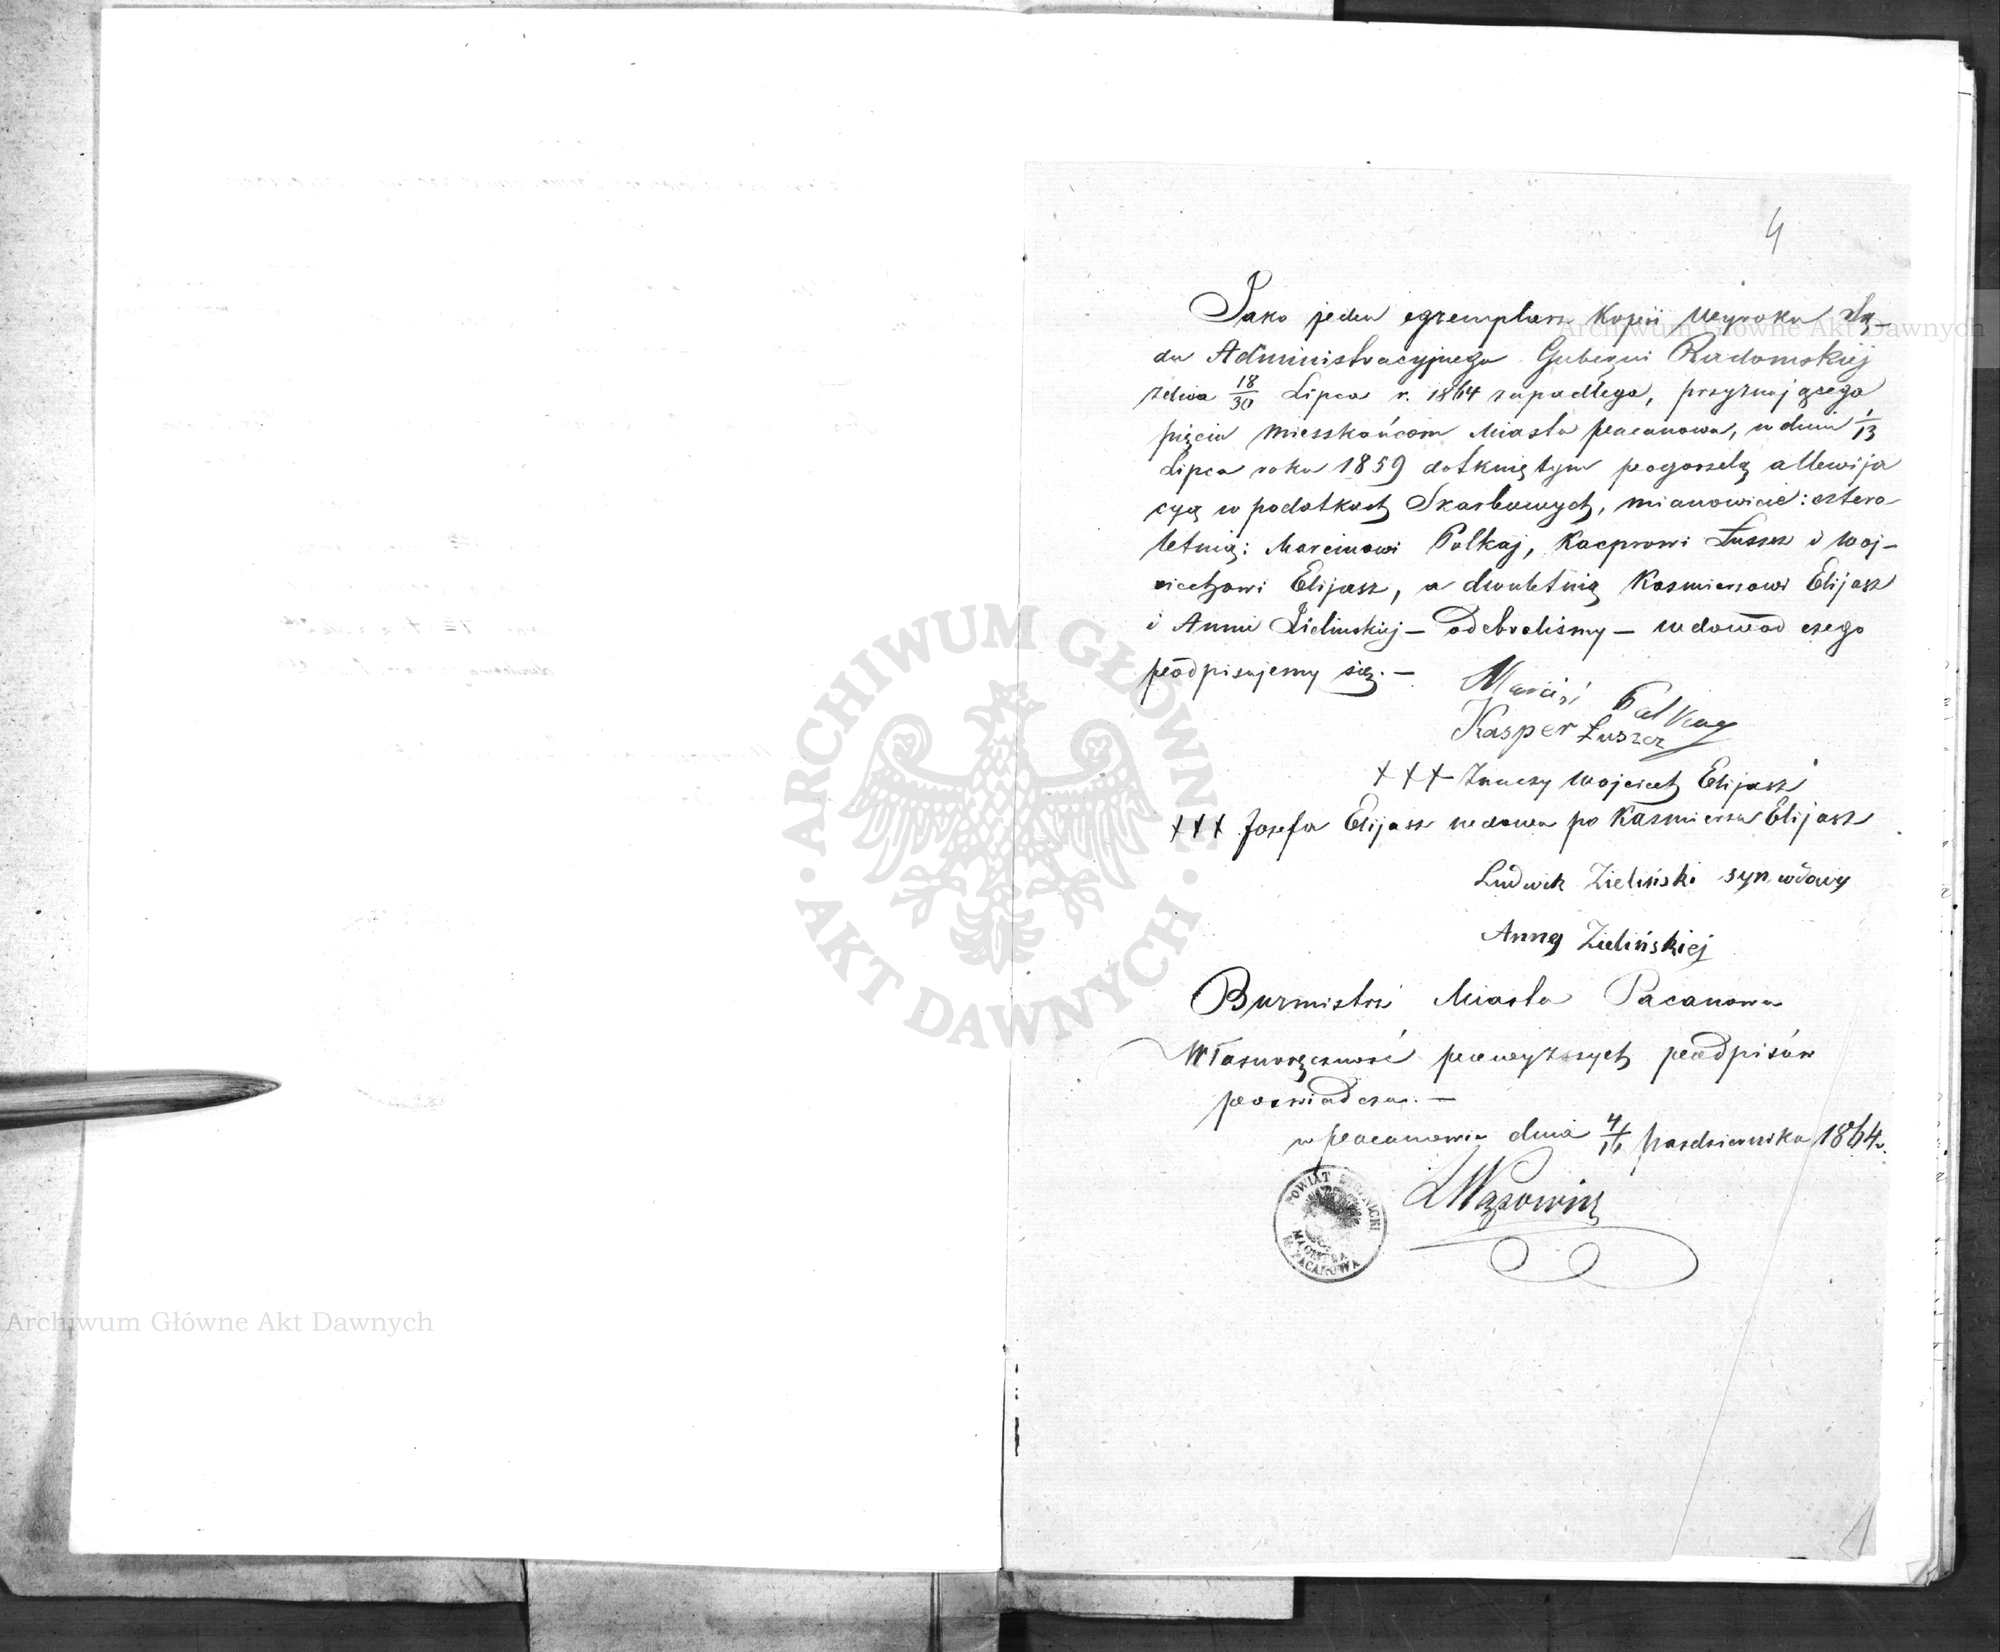 4
Jako jeden egzemplarz Kopii Wyroku Są-
du Administracyjnego Gubernii Radomskiej
z dnia 18/30 Lipca r. 1864 zapadłego, przyznającego
pięciu Mieszkańcom Miasta Pacanowa, w dniu 1/13
Lipca roku 1859 dotkniętym pogorzelą allewija
cyą w podatkach Skarbowych, mianowicie: cztero
letnią: Marcinowi Palkaj, Kacprowi Łuszcz i Woj-
ciechowi Elijasz, a dwuletnią Kazmierzowi Elijasz
i Annie Zielinskiej — odebraliśmy — w dowód czego
podpisujemy się. —
Marcin Palkaj
Kasper Łuszcz
+++ Znaczy Wojciech Elijasz
+++ Jozefa Elijasz wdowa po Kazmierzu Elijasz
Ludwik Zieliński syn wdowy
Anny Zielińskiej
Burmistrz Miasta Pacanowa
Własnoręczność powyższych podpisów
poświadcza. —
w Pacanowie dnia 4/16 Pazdziernika 1864 r.
LWąsowicz
POWIAT STOPNICKI
MAGISTRAT
M. PACANOWA
Archiwum Główne Akt Dawnych
ARCHIWUM GŁÓWNE · AKT DAWNYCH ·
Archiwum Główne Akt Dawnych